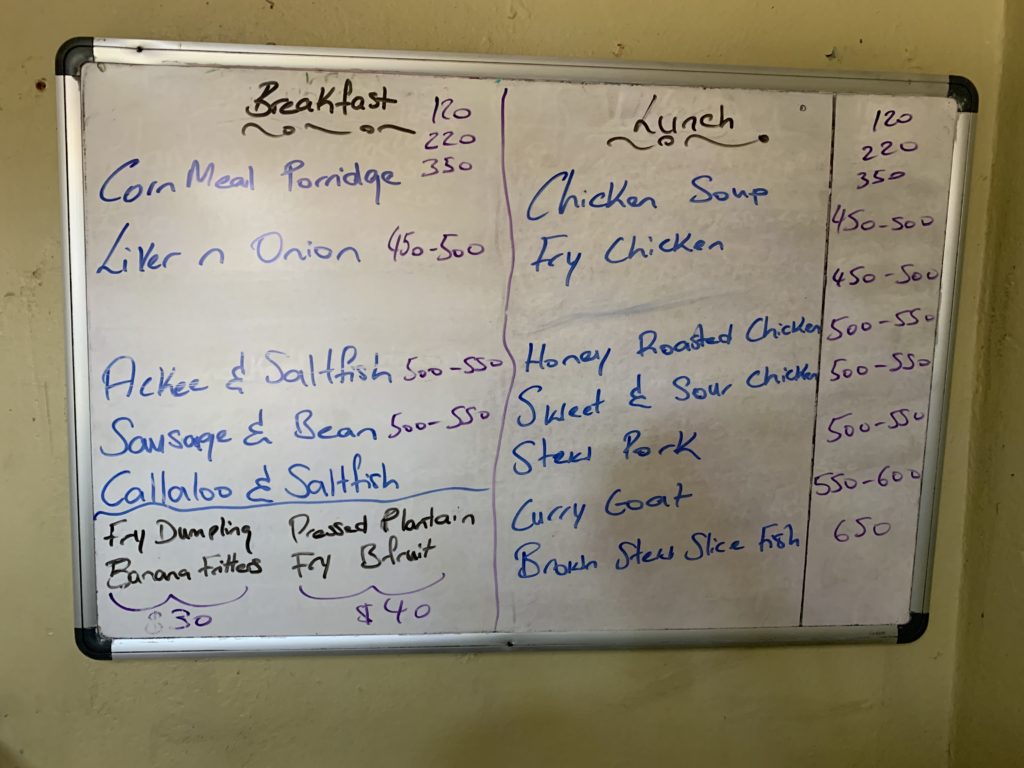 Breakfast
120
220
350
Corn Meal Porridge
Liver n Onion 450-500
Ackee & Saltfish 500-550
Sausage & Bean 500-550
Callaloo & Saltfish
Fry Dumpling Pressed Plantain
Banana Fritters Fry Bfruit
$30 $40
Lunch
120
220
350
Chicken Soup
450-500
Fry Chicken
450-500
Honey Roasted Chicken 500-550
Sweet & Sour Chicken 500-550
Stew Pork 500-550
Curry Goat 550-600
Brown Stew Slice Fish 650